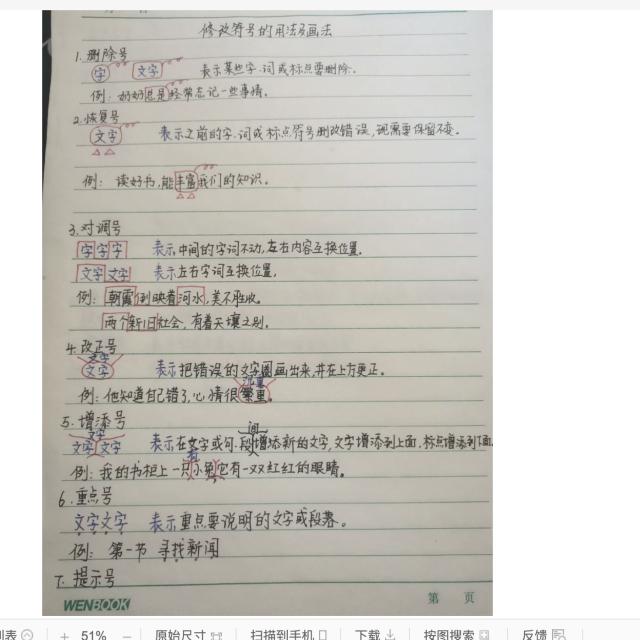 修改符号的用法及画法
1. 删除号
字 文字 表示某些字、词或标点要删除。
例：奶奶总是经常忘记一些事情。
2. 恢复号
文字 表示之前的字、词或标点符号删改错误，现需要保留不变。
例：读好书，能丰富我们的知识。
3. 对调号
字字字 表示中间的字词不动，左右内容互换位置。
文字文字 表示左右字词互换位置，
例：朝霞倒映着河水，美不胜收。
两个新旧社会，有着天壤之别。
4. 改正号
文字
文字 表示把错误的文字圈画出来，并在上方更正。
沉重
例：他知道自己错了，心情很繁重。
5. 增添号
文字 间
文字文字 表示在文字或句、段增添新的文字，文字增添到上面，标点增添到下面
有
例：我的书柜上一只小兔它有一双红红的眼睛。
6. 重点号
文字文字 表示重点要说明的文字或段落。
例：第一节 寻找新闻
7. 提示号
WENBOOK 第 页
列表 51% 原始尺寸 扫描到手机 下载 按图搜索 反馈